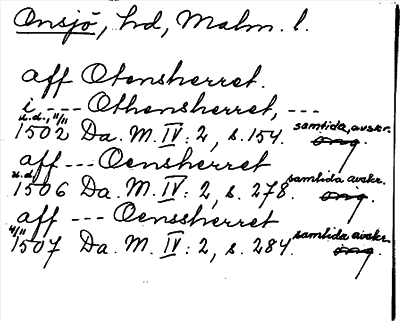 Onsjö, hd, Malm. l.
aff Otensherret.
i --- Othensherret, ---
u.d., 11/11 1502 Da. M. IV: 2, s. 154. samtida, avskr. orig.
aff --- Oensherret
u.d. 1506 Da. M. IV: 2, s. 278. samtida avskr. orig.
aff --- Oenssherret
4/11 1507 Da. M. IV: 2, s. 284. samtida avskr. orig.